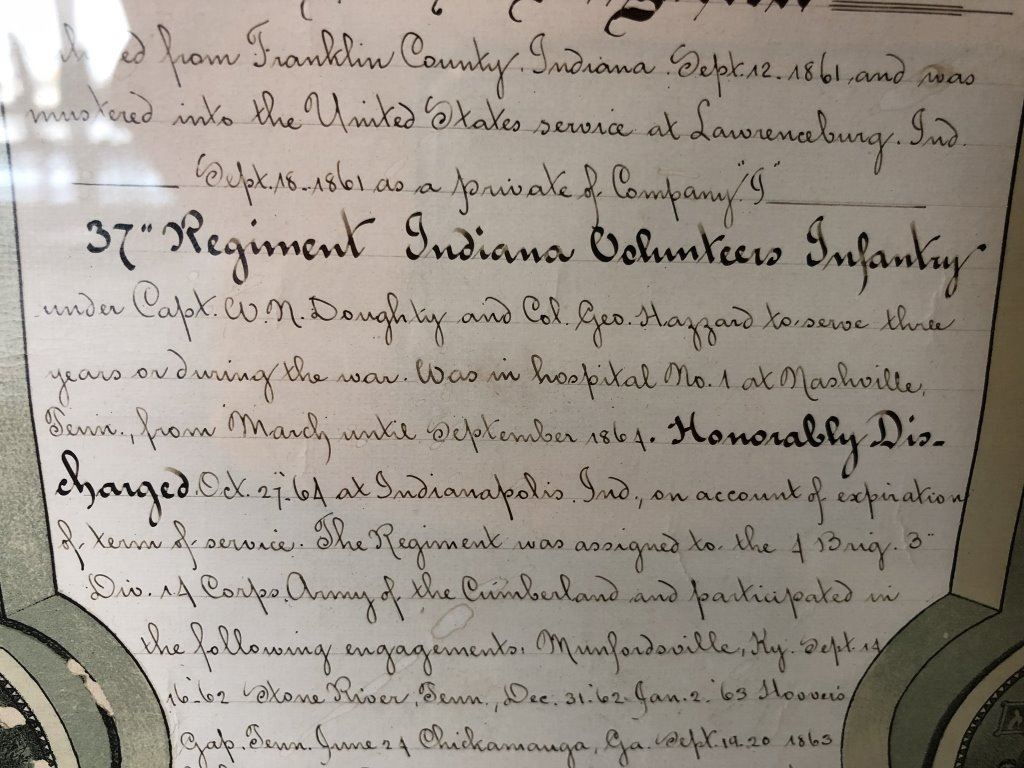 from Franklin County, Indiana. Sept. 12. 1861, and was
mustered into the United States service at Lawrenceburg. Ind.
Sept. 18. 1861 as a private of Company "I"
37" Regiment Indiana Volunteers Infantry
under Capt. W. N. Doughty and Col. Geo. Hazzard to serve three
years or during the war. Was in hospital No. 1 at Nashville,
Tenn., from March until September 1864. Honorably Dis-
charged Oct. 27". 64 at Indianapolis, Ind., on account of expiration
of term of service. The Regiment was assigned to the 4 Brig. 3"
Div. 14 Corps, Army of the Cumberland and participated in
the following engagements: Munfordsville, Ky. Sept. 14
16 '62 Stone River, Tenn., Dec. 31 '62. Jan. 2. '63 Hoovers
Gap. Tenn. June 24 Chickamauga, Ga. Sept. 19. 20 1863